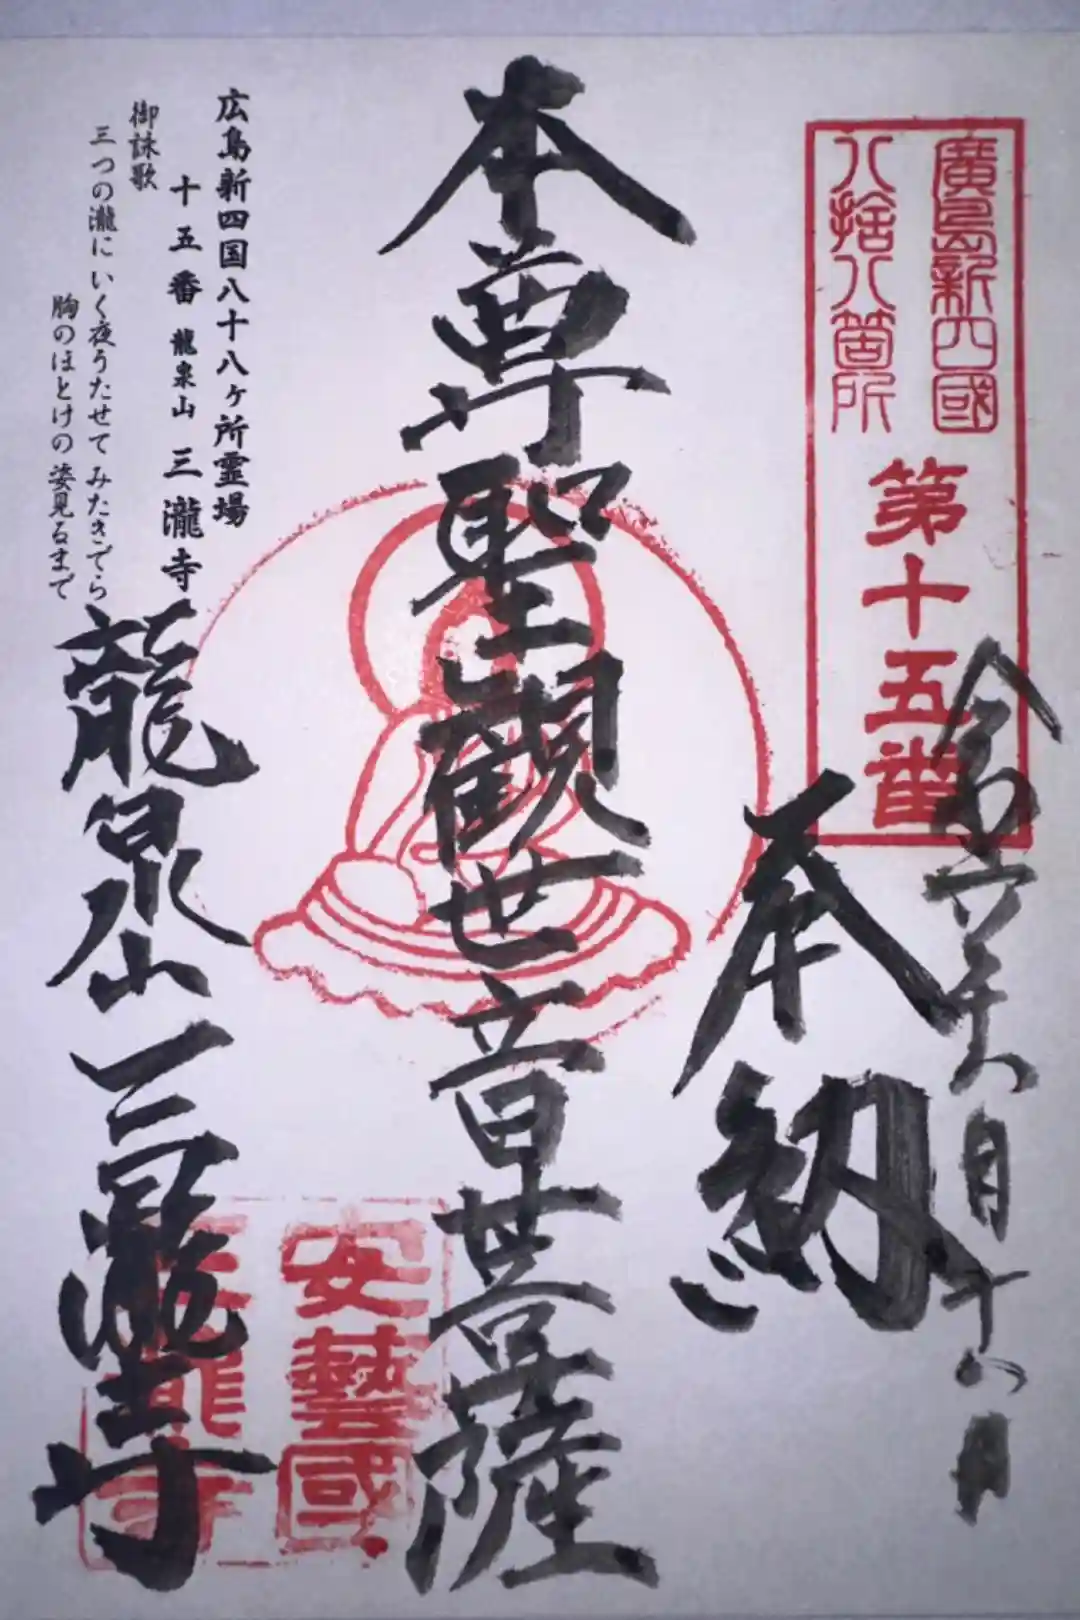 廣島新四國
八拾八箇所
第十五番
奉納
本尊聖観世音菩薩
広島新四国八十八ヶ所霊場
十五番 龍泉山 三瀧寺
御詠歌
三つの瀧に いく夜うたせて みたきでら
胸のほとけの 姿見るまで
龍泉山三瀧寺
安藝國
三瀧寺